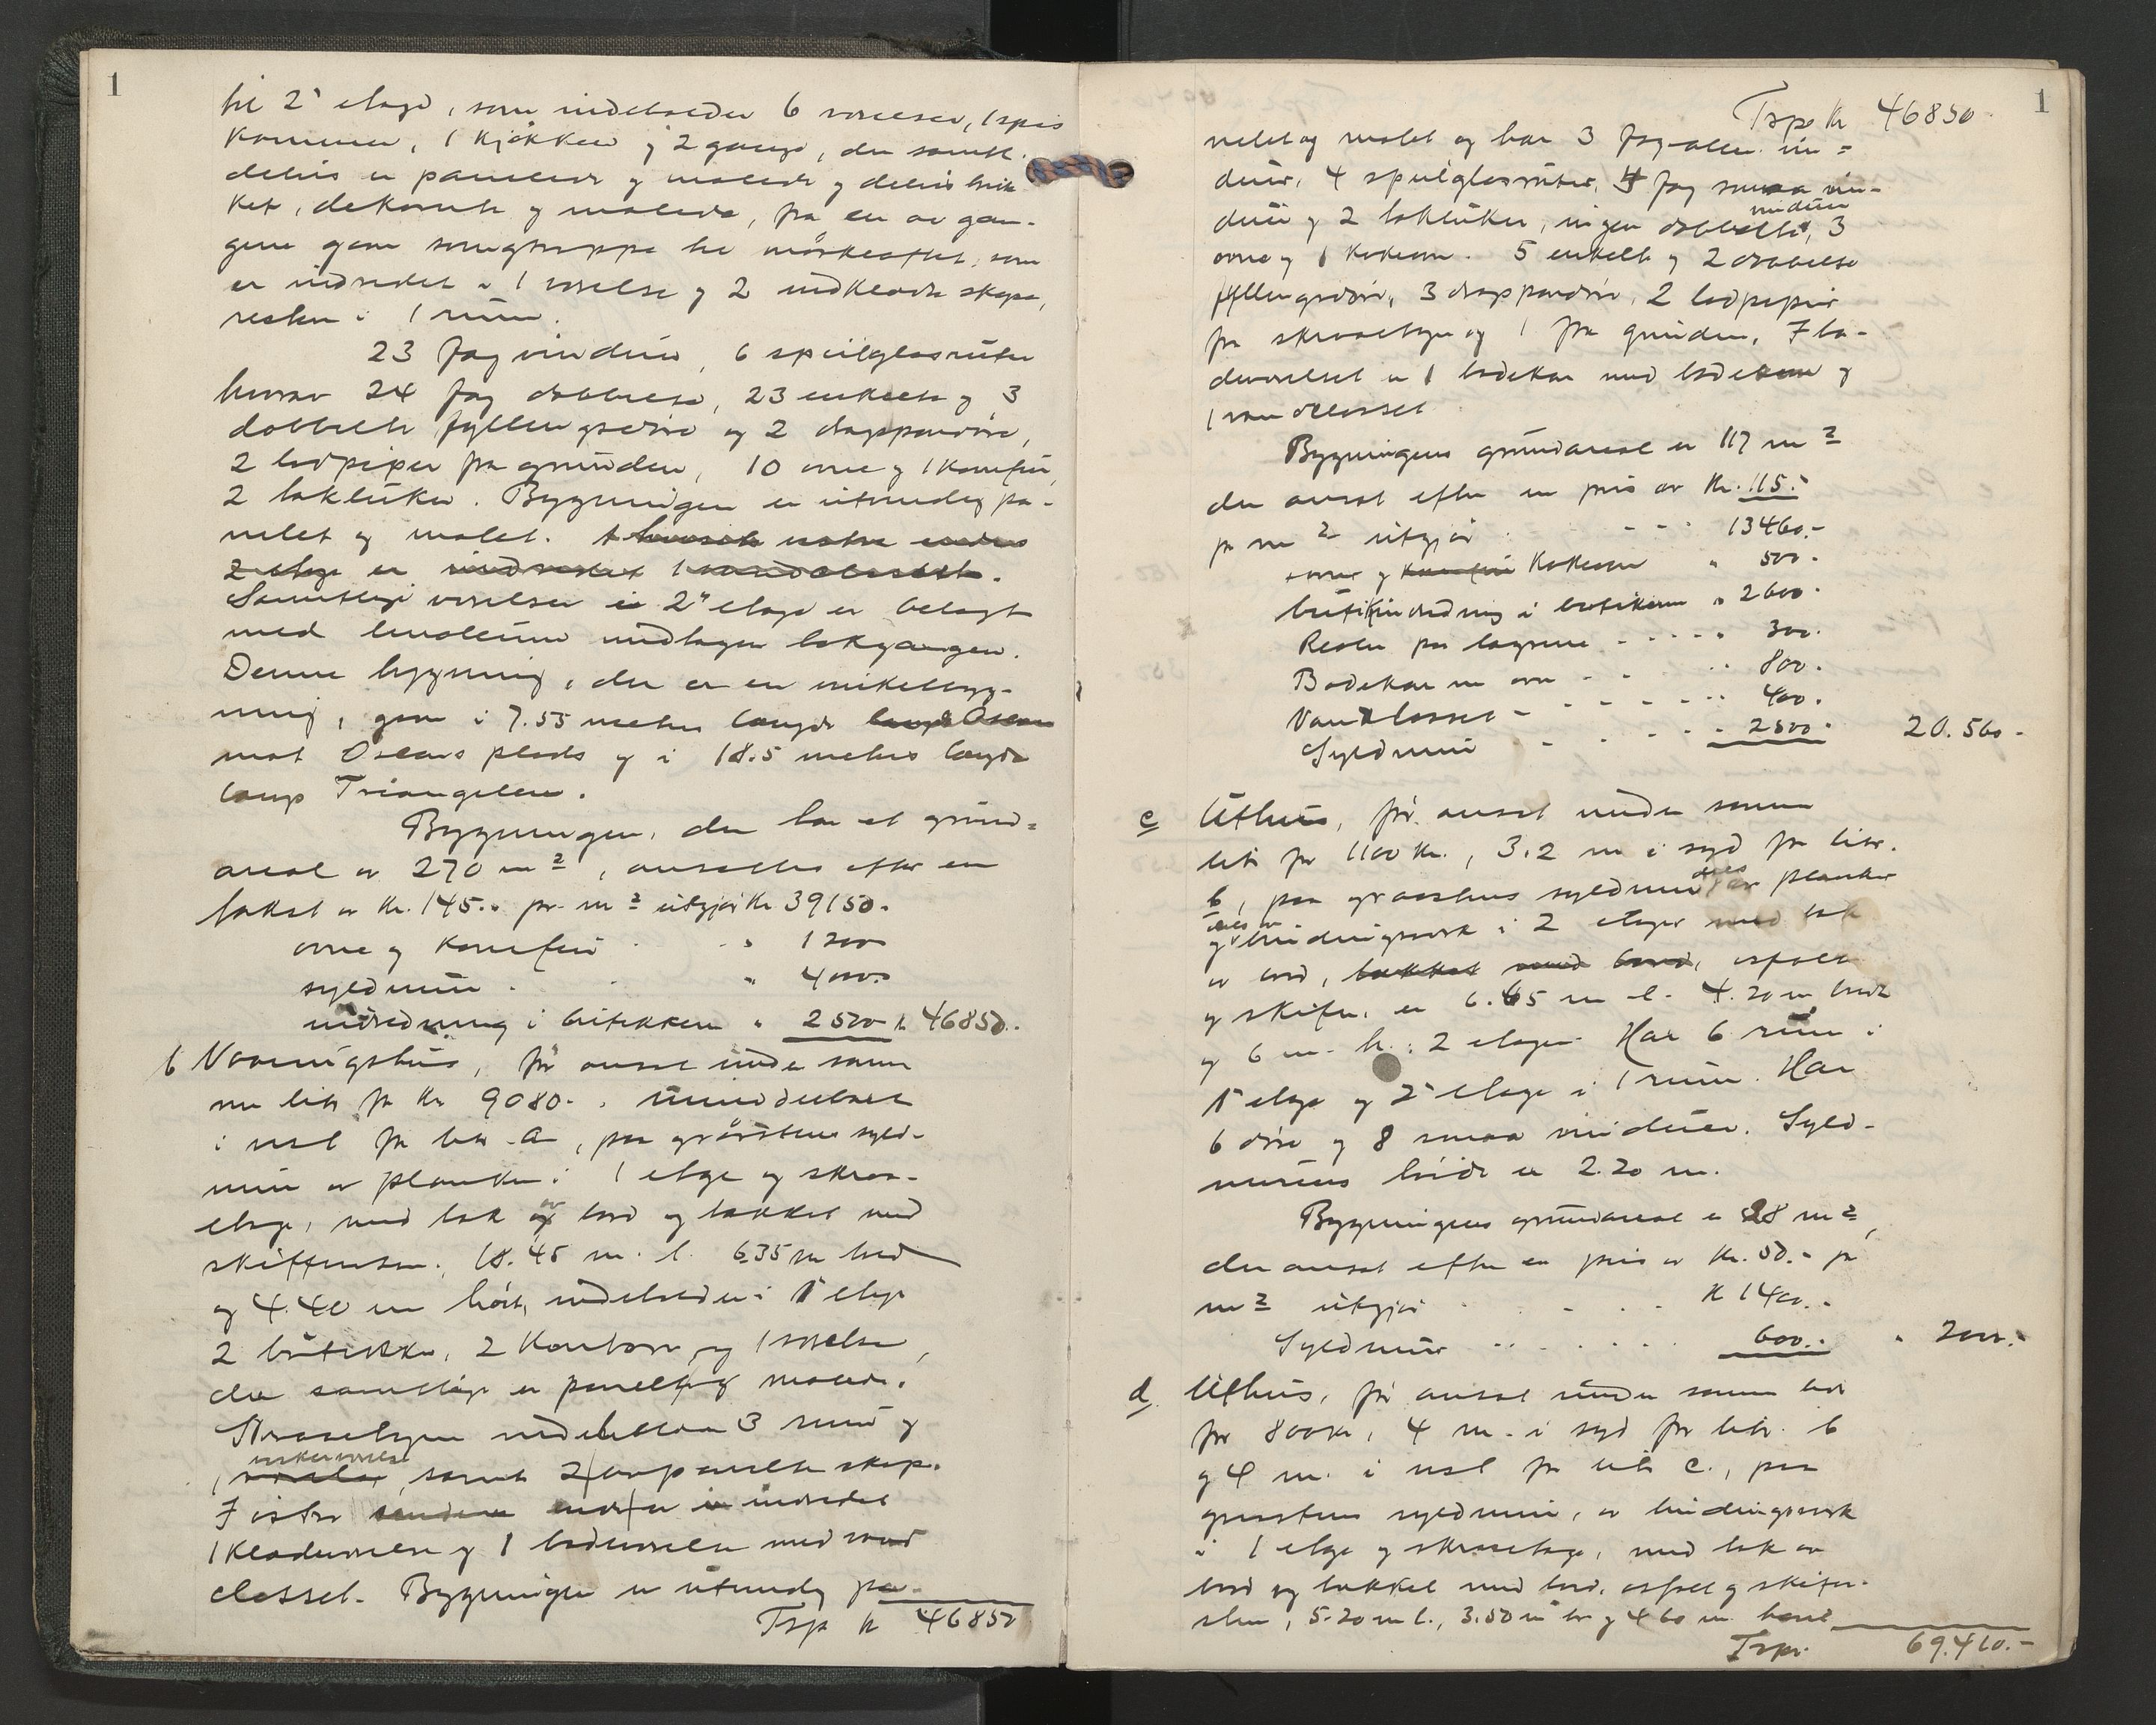 1
til 2' etage, som indeholder 6 værelser, 1 spis
kammer, 1 kjøkken og 2 gange, der samt.
delvis er panelede og malede og delvis strik
ket, dekorerte og malede, fra en av gan-
gene gaar svingtrappe til mørkeloftet, som
er indredet i 1 værelse og 2 indklædte skape,
resten i 1 rum.
23 fag vinduer, 6 speilglasruter
hvorav 24 fag dobbelte, 23 enkelte og 3
dobbelte fyllingsdøre og 2 drappandøre,
2 lodpiper fra grunden, 10 ovne og 1 komfur,
2 takluker. Bygningen er utvendig pa-
nelet og malet. I hvorsele østre endes
2 etage er indredet 1 vandclosett.
Samtlige værelser i 2' etage er belagt
med linoleum undtagen bakgangen.
Denne bygning, der er en vinkelbyg-
ning, gaar i 7.55 meters længde langs Oscars
mot Oscars plads og i 18.5 meters længde
langs Triangelen.
Bygningen, der har et grund=
areal av 270 m², ansættes efter en
takst av kr. 145.- pr. m² utgjør kr 39150.
ovne og komfur " 1200
syldmur . . " 4000
indredning i butikken " 2500 kr 46850.
b Vaaningshus, før ansat under samme
nu litr for kr 9080.-, umiddelbart
i vest for litr. a, paa graastens syld-
mur av planker i 1 etage og skraa-
etage, med tak av bord og tækket med
skiffersten, 18.45 m. l. 6.35 m bred
og 4.40 m høit, indeholder i 1' etage
2 butikker, 2 kontorer og 1 værelse,
der samtlige er panelt og malede.
Skraaetagen indeholder 3 rum og
pikeværelse
1 værelse, samt 2 avpanelte skap.
I østre endre ende er indredet
1 klædeværelse og 1 badeværelse med vand
closset. Bygningen er utvendig pa-
Trsp kr 46850
1
Trsp kr 46850
nelet og malet og har 3 fag alm. vin=
duer, 4 speilglasruter, 4 fag smaa vin-
vinduer
duer og 2 takluker, ingen dobbelte, 3
ovne og 1 kokeovn. 5 enkelte og 2 dobbelte
fyllingsdøre, 3 drappandøre, 2 lodpiper
fra skraaetagen og 1 fra grunden, I ba-
deværelset er 1 badekar med badeovn og
1 vandclosset.
Bygningens grundareal er 117 m²
der ansat efter en pris av kr. 115.-
pr m² utgjør . - - - 13460.-
ovne og komfur kokeovn " 500.
butikindredning i butikerne " 2600.
Reoler paa lagrene - - - - " 300.
Badekar m ovn - - " 800.
Vandclosset - - - - - " 400.
Syldmur - - - - " 2500. 20.560.-
c Uthus, før ansat under samme
litr for 1100 kr., 3.2 m i syd for litr.
b, paa graastens syldmur dels av planker
dels av
og bindingsverk i 2 etager med tak
av bord, tækket med bord, asfalt
og skifer, er 6.65 m l. 4.20 m bredt
og 6 m. h. i 2 etager. Har 6 rum i
1' etage og 2' etage i 1 rum. Har
6 døre og 8 smaa vinduer. Syld-
murens høide er 2.20 m.
Bygningens grundareal er 28 m²,
der ansat efter en pris av kr. 50.- pr
m² utgjør . - - - kr 1400.-
Syldmur - - . . . . 600.- " 2000.-
d Uthus, før ansat under samme litr
for 800 kr, 4 m. i syd for litr. b
og 4 m. i vest for litr c., paa
graastens syldmur, av bindingsverk
i 1 etage og skraaetage, med tak av
bord og tækket med bord, asfalt og skifer-
sten, 5.20 m l., 3.50 m br og 4.60 m høit
Trsp. 69.410.-